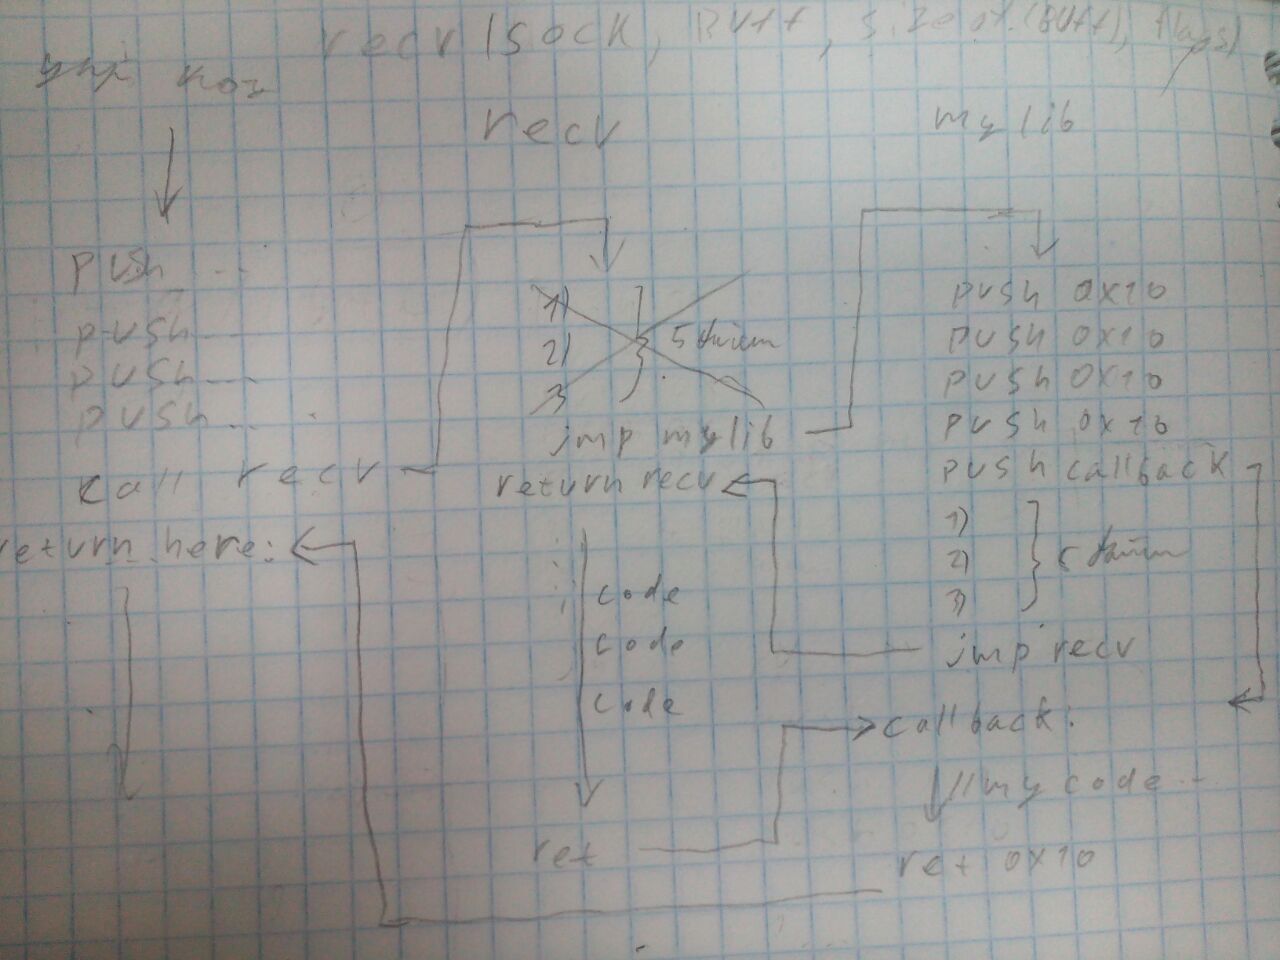 recv(sock, Buff, sizeof(Buff), flags)
код
recv
mylib
push ...
push ...
push ...
push ...
call recv
return here:
1)
2)
3)
5 байт
jmp mylib
return recv
code
code
code
ret
push 0x10
push 0x10
push 0x10
push 0x10
push callback
1)
2)
3)
5 байт
jmp recv
callback:
//my code ...
ret 0x10